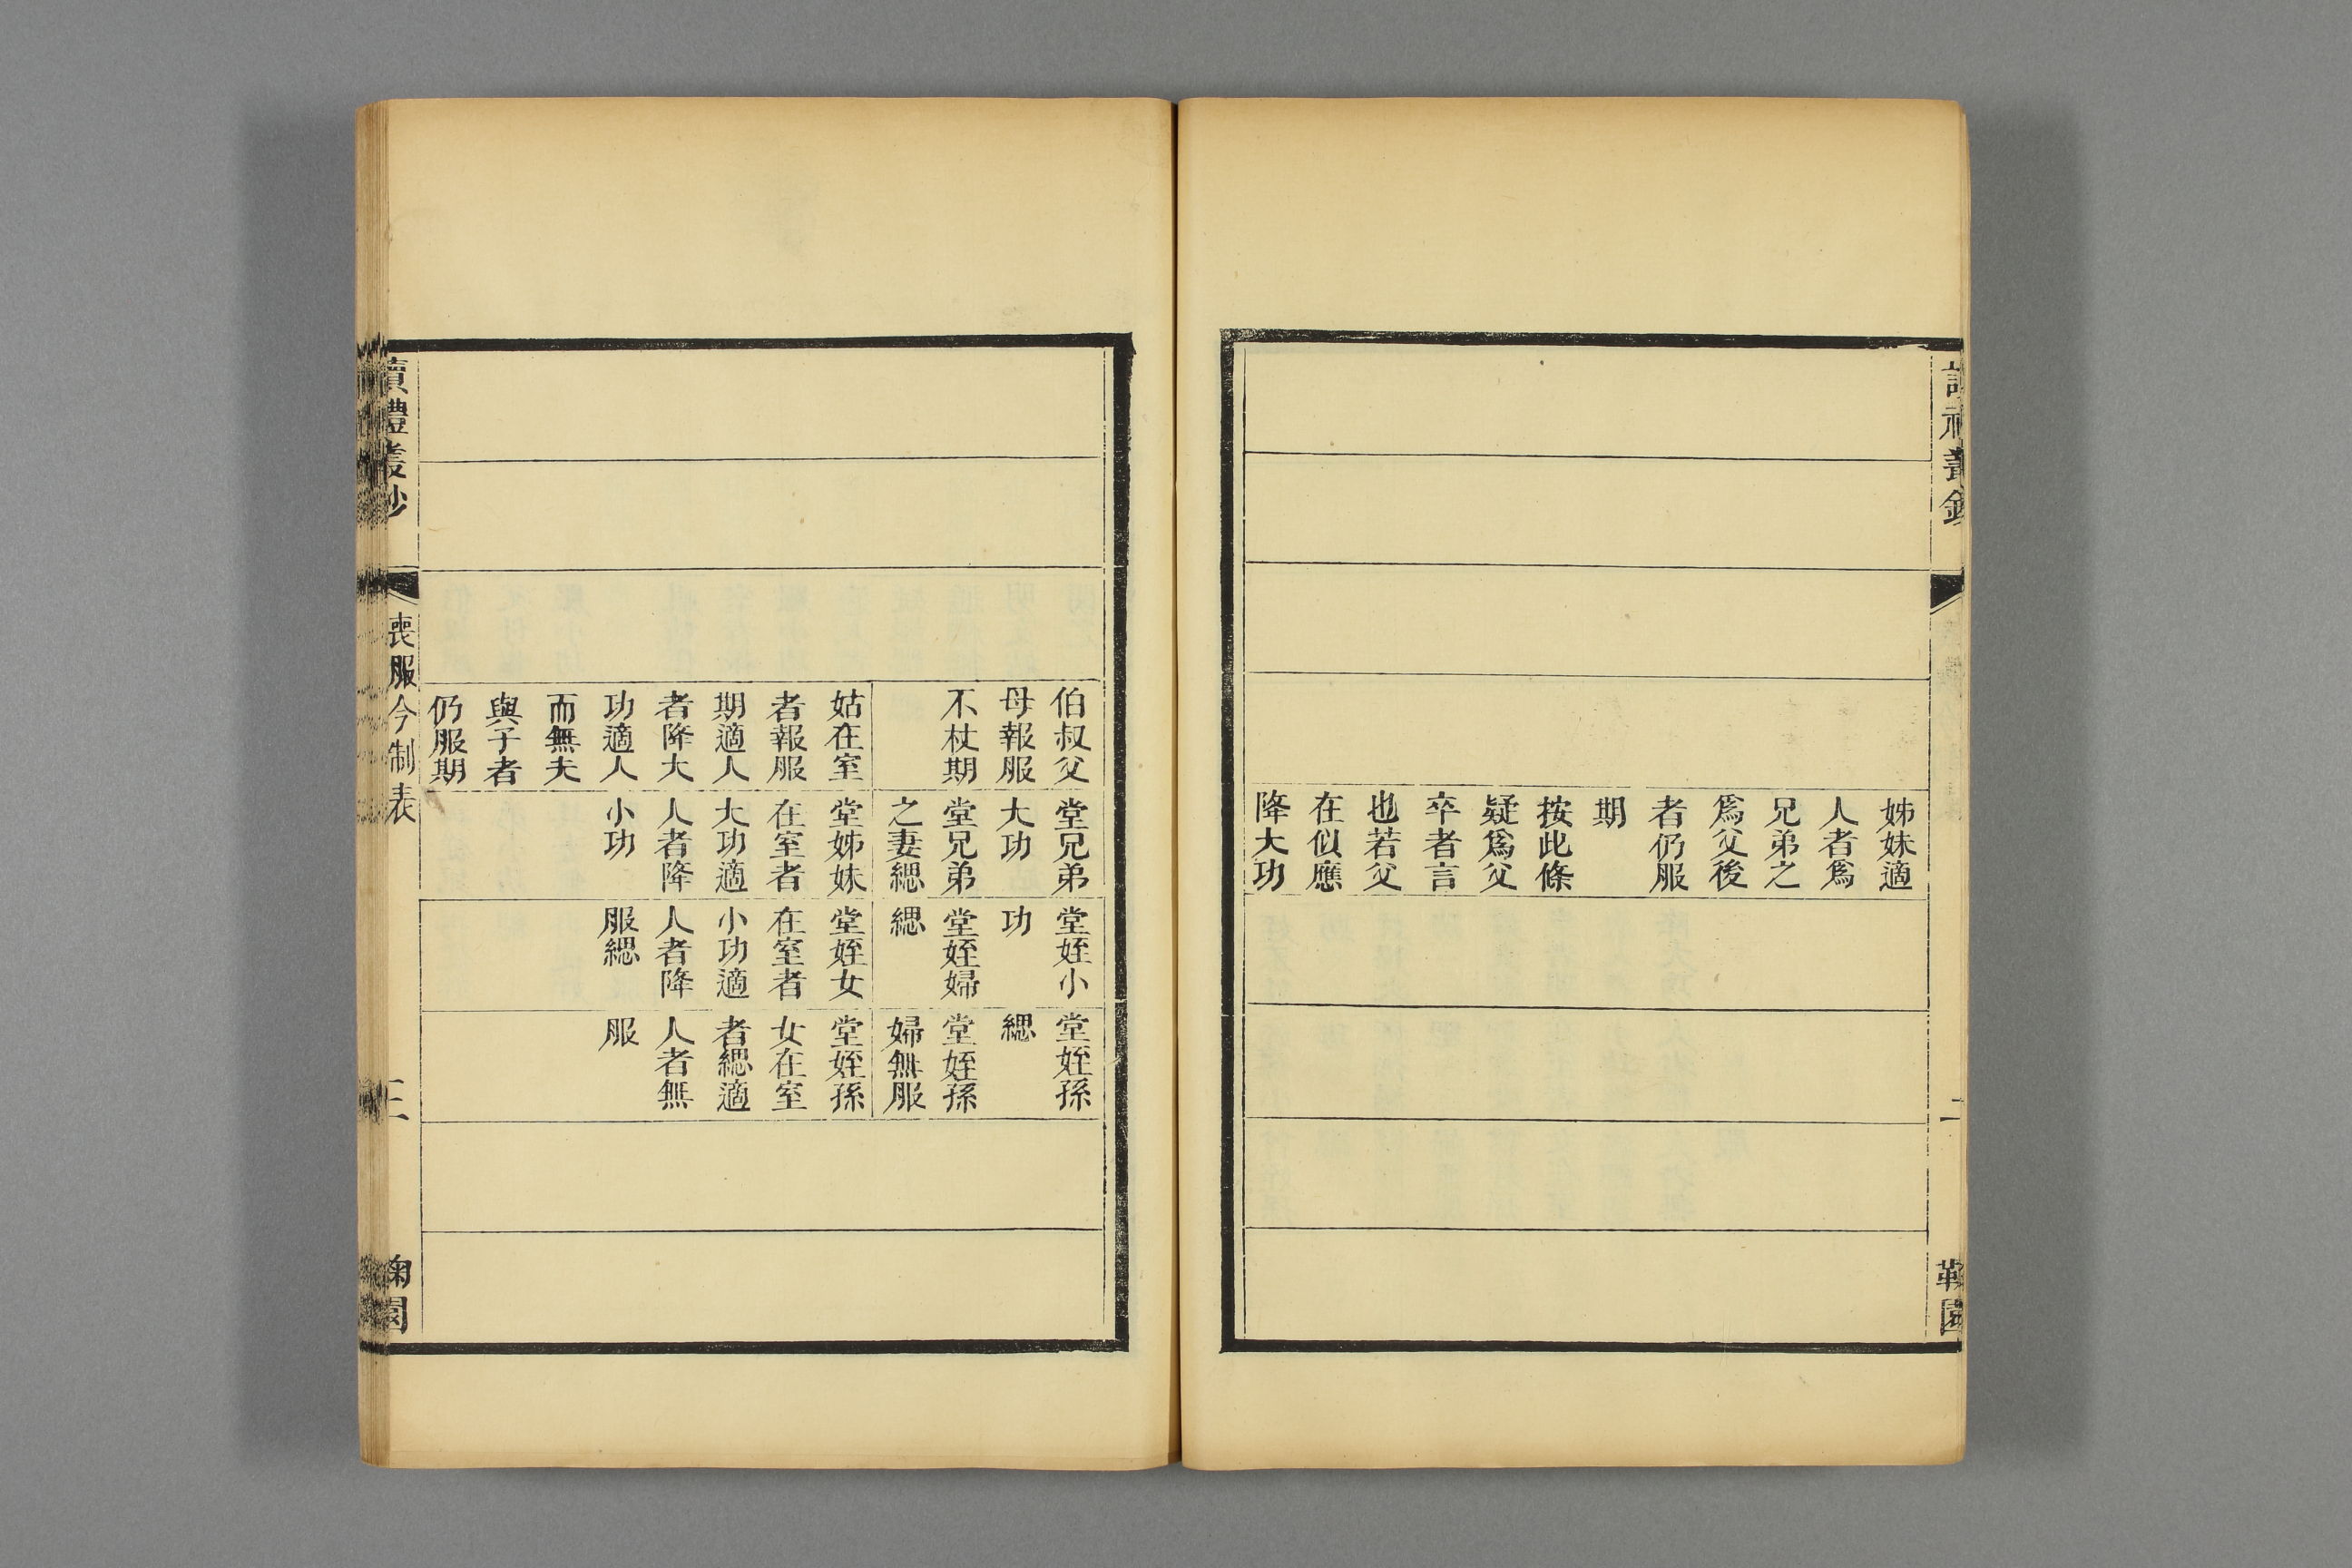 姊妹適
人者爲
兄弟之
爲父後
者仍服
期
按此條
疑爲父
卒者言
也若父
在似應
降大功
二
園
伯叔父
母報服
不杖期
堂兄弟
大功
堂兄弟
之妻緦
堂姪小
功
堂姪婦
緦
堂姪孫
緦
堂姪孫
婦無服
姑在室
者報服
期適人
者降大
功適人
而無夫
與子者
仍服期
堂姊妹
在室者
大功適
人者降
小功
堂姪女
在室者
小功適
人者降
服緦
堂姪孫
女在室
者緦適
人者無
服
讀禮叢鈔
喪服今制表
三
園